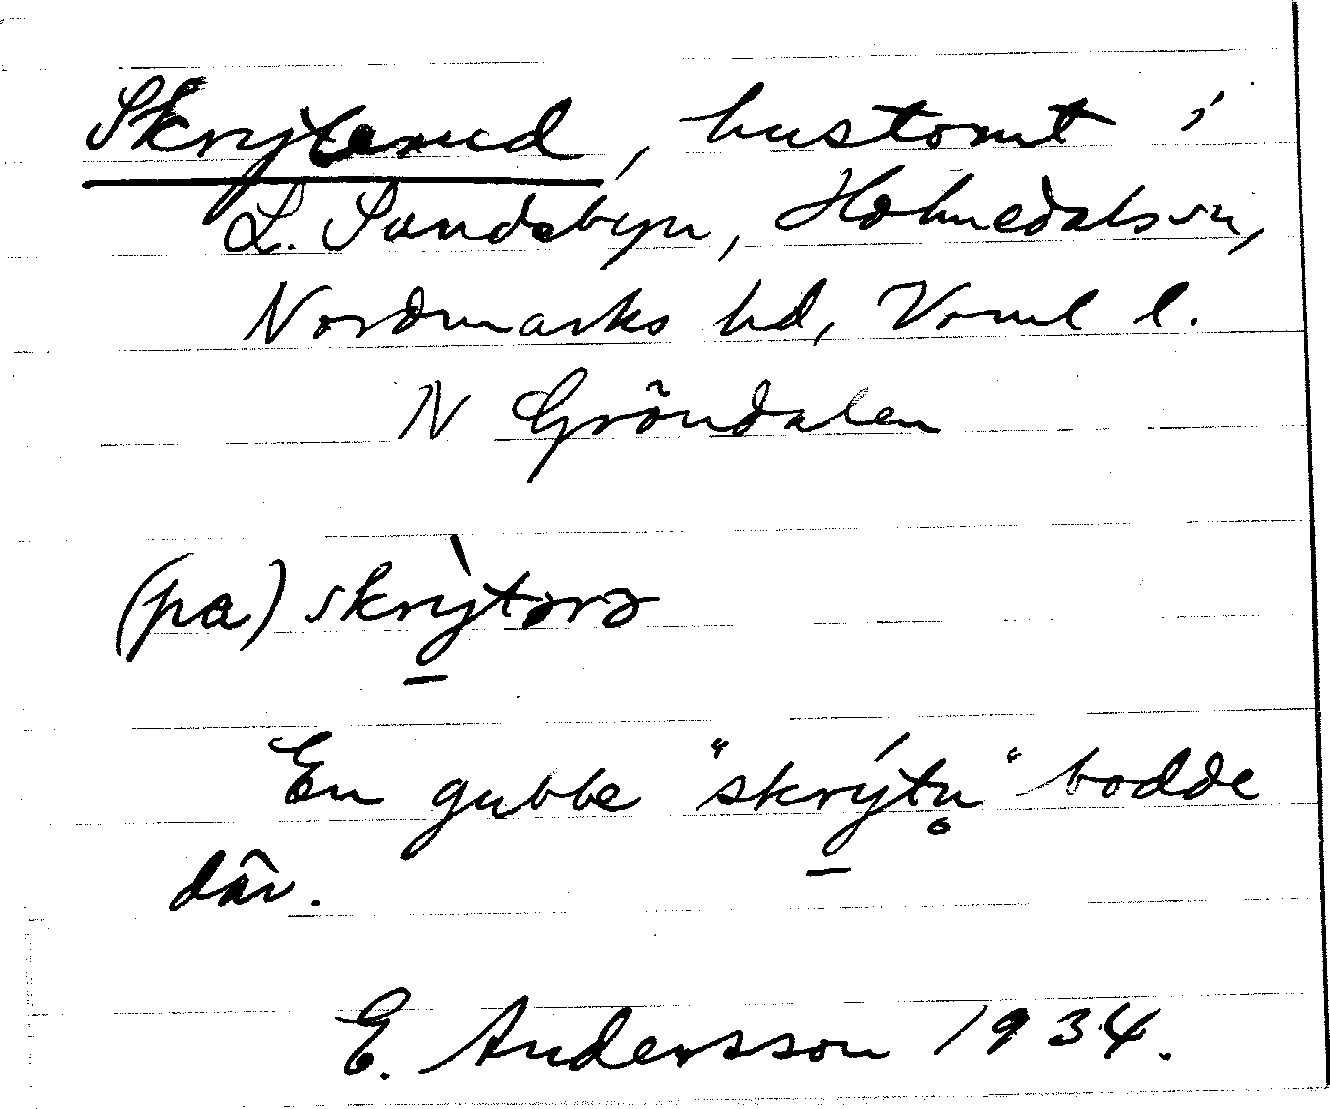 Skryterud, hustomt i
L. Sandsbyn, Holmedals sn,
Nordmarks hd, Vrml l.
N Gröndalen
(pa) skrỳtərə
En gubbe "skrýtn̥" bodde
där.
E. Andersson 1934.